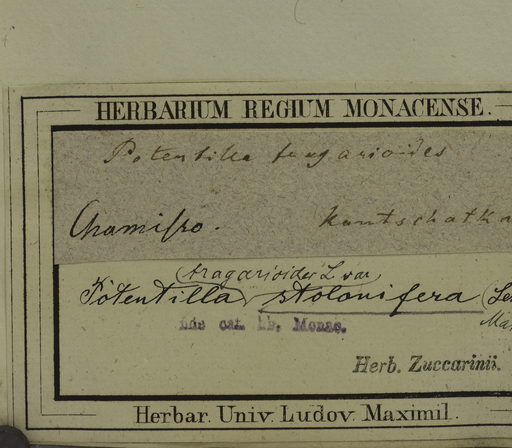 HERBARIUM REGIUM MONACENSE.
Potentilla fragarioides
Chamisso. Kamtschatka
(fragarioides L. var.
Potentilla stolonifera (Le
Mar
cat. Monac.
Herb. Zuccarinii.
Herbar. Univ. Ludov. Maximil.